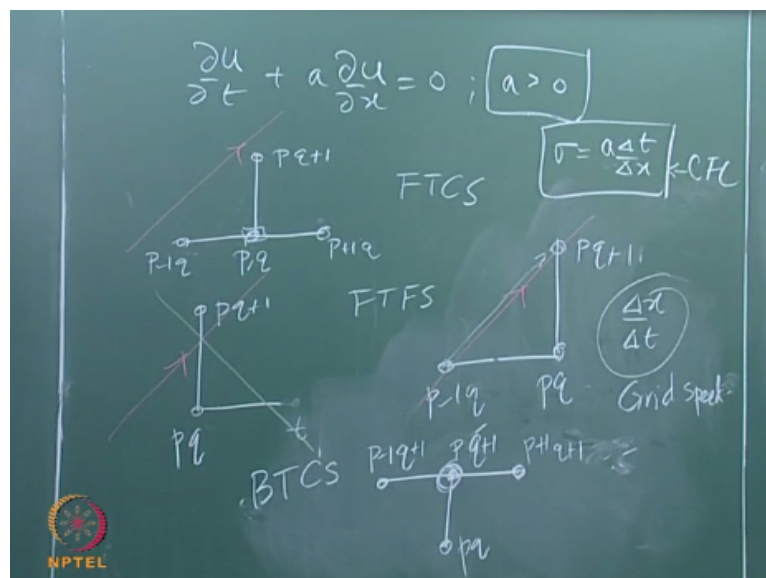 ∂u/∂t + a ∂u/∂x = 0 ; a > 0
σ = a Δt/Δx ← CFL
p q+1
FTCS
p-1 q
p,q
p+1 q
p q+1
FTFS
p q+1
Δx/Δt
p q
p-1 q
p q
Grid speed
BTCS
p-1 q+1
p q+1
p+1 q+1
p q
NPTEL